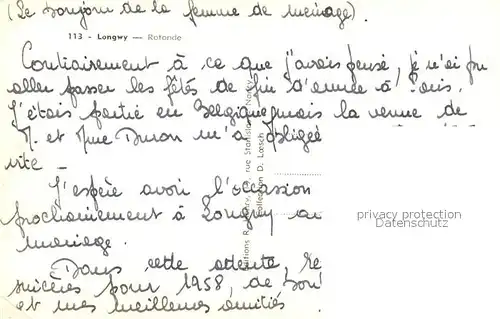 (Le bonjour de la femme de ménage).
113 - Longwy — Rotonde
Contrairement à ce que j'avais pensé, je n'ai pu
aller passer les fêtes de fin d'année à Paris.
J'étais partie en Belgique mais la venue de
M. et Mme m'a obligée
vite -
J'espère avoir l'occasion
prochainement à Longwy au
mariage.
Dans cette attente,
sincères pour 1958, de bon
et mes meilleures amitiés
rue Stanislas - Nancy
Collection D. Lœsch
privacy protection
Datenschutz